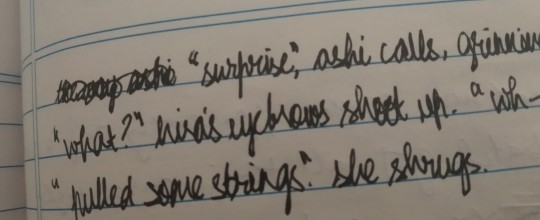 "surprise", ashi calls, grinning
"what?" hira's eyebrows shoot up. "wh-
"pulled some strings". she shrugs.